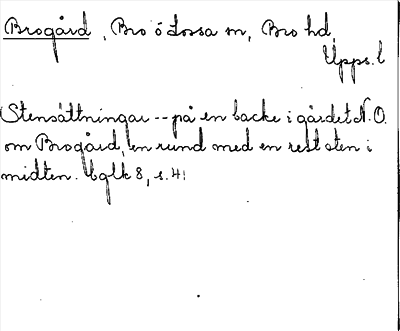 Brogård, Bro ö Lossa sn, Bro hd,
Upps. l
Stensättningar -- på en backe i gärdet N.O.
om Brogård, en rund med en rest sten i
midten. Uglk 8, s. 41